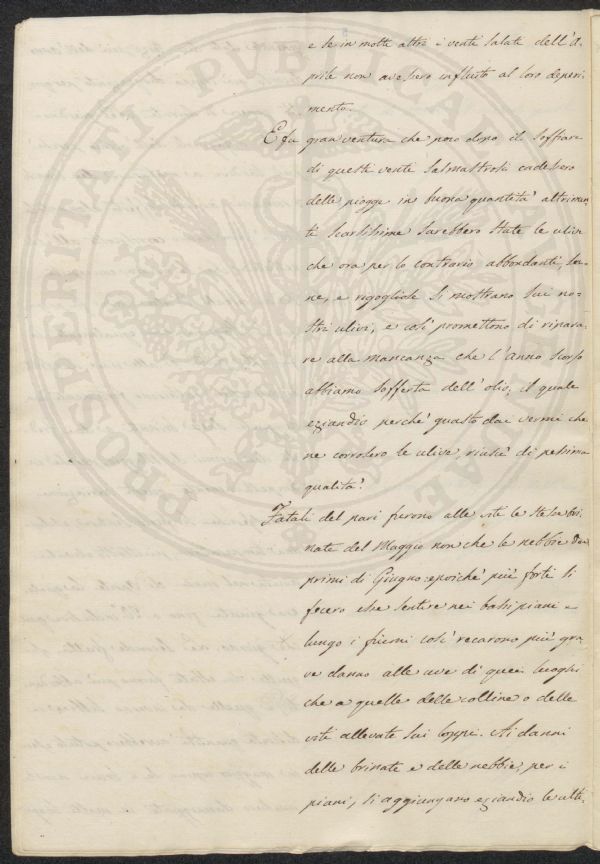 e se in molte altre i venti salati dell'A-
prile non avessero influito al loro deperi-
mento.
E fu gran ventura che poco dopo il soffiare
di questi venti salmastrosi cadessero
delle piogge in buona quantità altrimen-
ti scarsissime sarebbero state le ulive
che ora per lo contrario abbondanti, sa-
ne, e rigogliose si mostrano sui no-
stri ulivi, e così promettono di ripara-
re alla mancanza che l'anno scorso
abbiamo sofferta dell'olio; il quale
eziandio perchè guasto dai vermi che
ne corrosero le ulive, riuscì di pessima
qualità.
Fatali del pari furono alle viti le stesse bri-
nate del Maggio non che le nebbie dei
primi di Giugno: epoichè più forti si
fecero esse sentire nei bassi piani e
lungo i fiumi così recarono più gra-
ve danno alle uve di quei luoghi
che a quelle delle colline o delle
viti allevate sui loppi. Ai danni
delle brinate e delle nebbie, per i
piani, si aggiungano eziandio le alti-
PROSPERITATI PUBLICAE